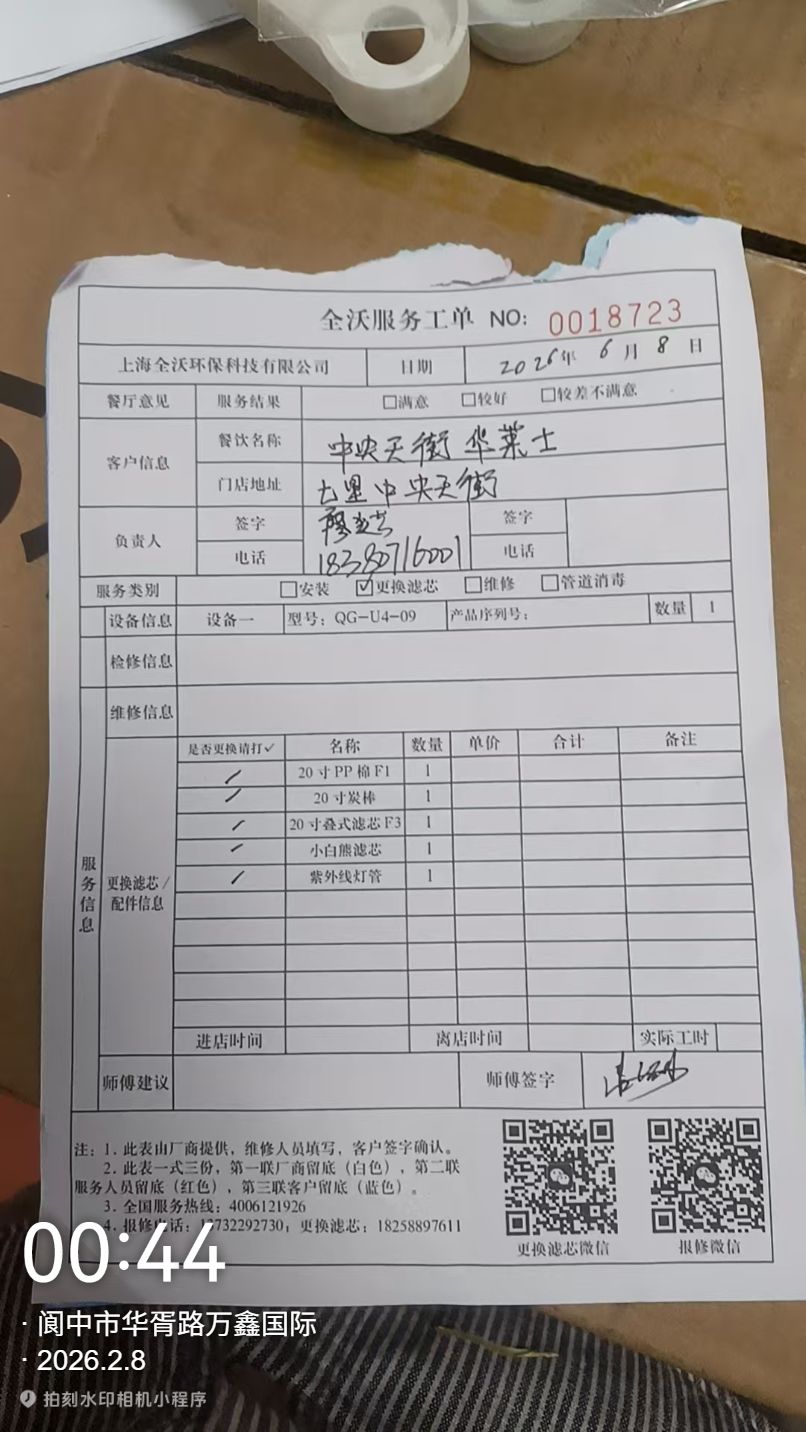 全沃服务工单 NO: 0018723
上海全沃环保科技有限公司 日期 2026年 6月 8日
餐厅意见 服务结果 □满意 □较好 □较差不满意
客户信息 餐饮名称 中央天街 华莱士
门店地址 七里中央天街
负责人 签字 签字
电话 18380716001 电话
服务类别 □安装 ☑更换滤芯 □维修 □管道消毒
设备信息 设备一 型号：QG-U4-09 产品序列号： 数量 1
检修信息
维修信息
服务信息
更换滤芯/
配件信息
是否更换请打✓ 名称 数量 单价 合计 备注
✓ 20寸PP棉F1 1
✓ 20寸炭棒 1
✓ 20寸叠式滤芯F3 1
✓ 小白熊滤芯 1
✓ 紫外线灯管 1
进店时间 离店时间 实际工时
师傅建议 师傅签字
注：1. 此表由厂商提供，维修人员填写，客户签字确认。
2. 此表一式三份，第一联厂商留底（白色），第二联
服务人员留底（红色），第三联客户留底（蓝色）。
3. 全国服务热线：4006121926
4. 报修电话：732292730；更换滤芯：18258897611
更换滤芯微信 报修微信
00:44
· 阆中市华胥路万鑫国际
· 2026.2.8
拍刻水印相机小程序